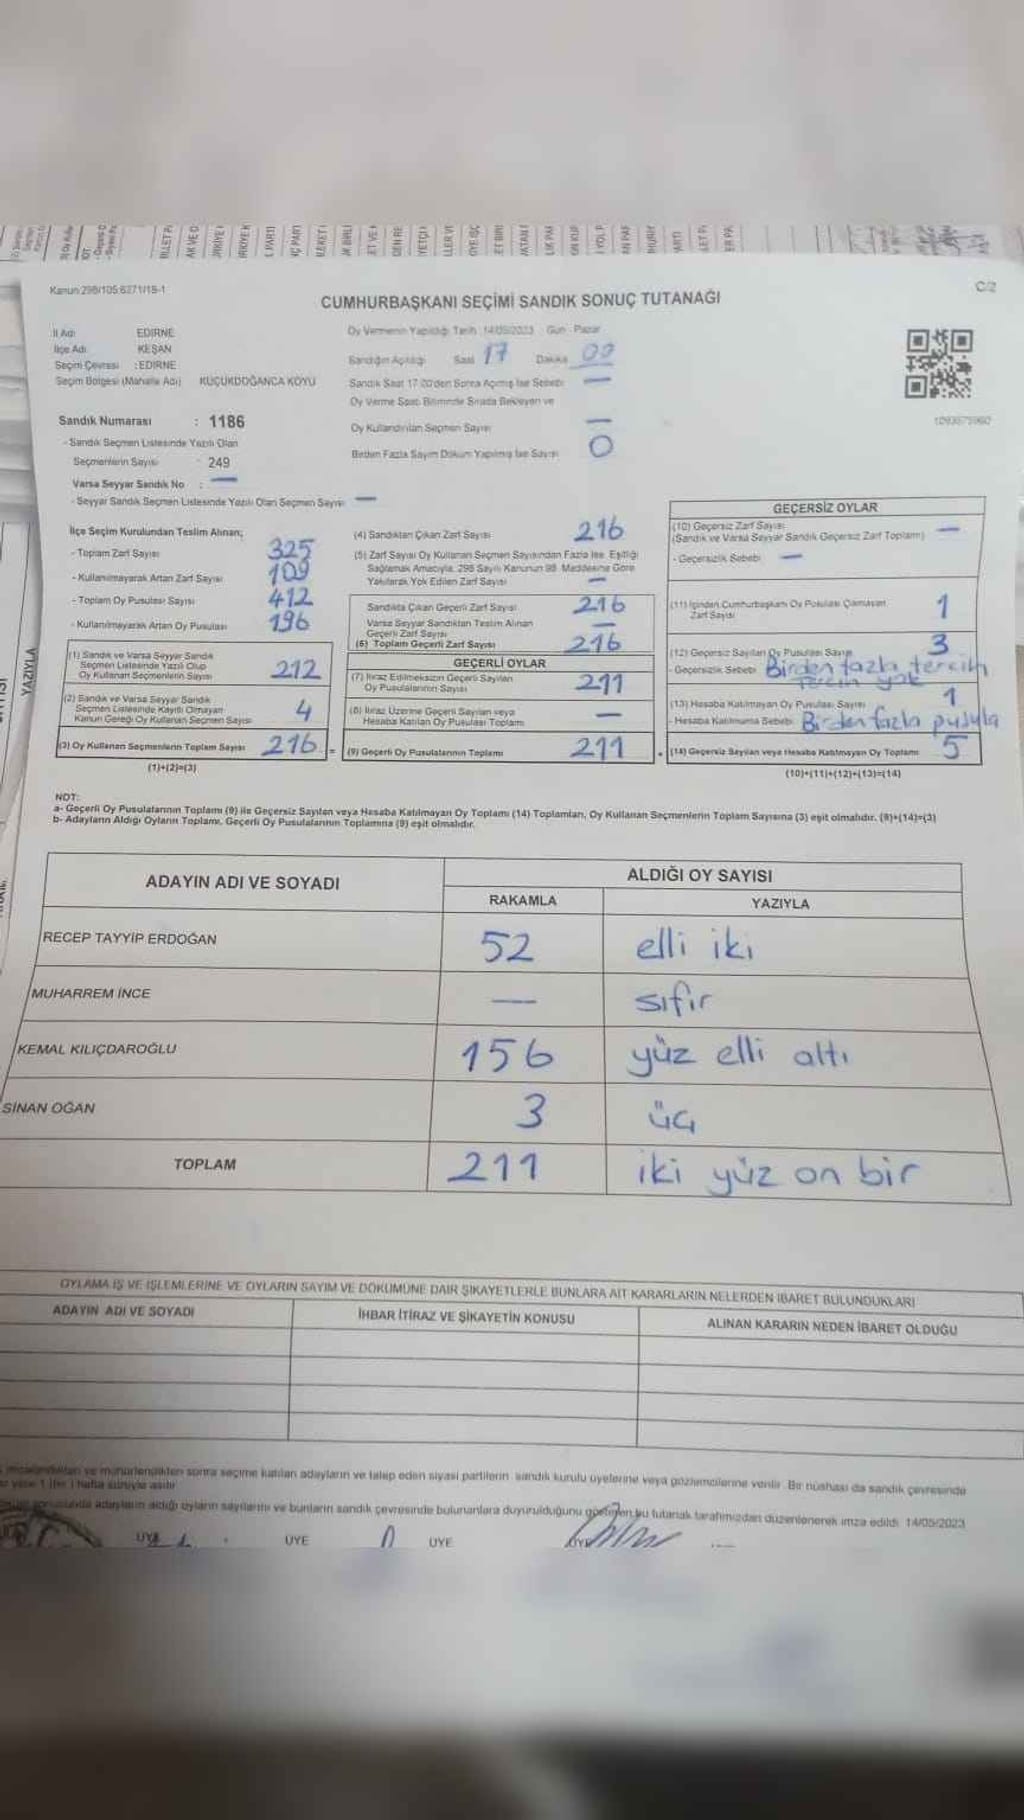 Kanun:298/105 6271/19-1
C/2
CUMHURBAŞKANI SEÇİMİ SANDIK SONUÇ TUTANAĞI
İl Adı EDİRNE
İlçe Adı KEŞAN
Seçim Çevresi :EDİRNE
Seçim Bölgesi (Mahalle Adı) KÜÇÜKDOĞANCA KÖYÜ
Oy Vermenin Yapıldığı Tarih 14/05/2023 Gün Pazar
Sandığın Açıldığı Saat 17 Dakika 00
Sandık Saat 17 00'den Sonra Açılmış İse Sebebi —
Oy Verme Saati Bitiminde Sırada Bekleyen ve
Oy Kullandırılan Seçmen Sayısı —
Birden Fazla Sayım Döküm Yapılmış İse Sayısı 0
Sandık Numarası : 1186
- Sandık Seçmen Listesinde Yazılı Olan
Seçmenlerin Sayısı 249
Varsa Seyyar Sandık No : —
- Seyyar Sandık Seçmen Listesinde Yazılı Olan Seçmen Sayısı —
İlçe Seçim Kurulundan Teslim Alınan;
- Toplam Zarf Sayısı 325
- Kullanılmayarak Artan Zarf Sayısı 109
- Toplam Oy Pusulası Sayısı 412
- Kullanılmayarak Artan Oy Pusulası 196
(1) Sandık ve Varsa Seyyar Sandık
Seçmen Listesinde Yazılı Olup
Oy Kullanan Seçmenlerin Sayısı 212
(2) Sandık ve Varsa Seyyar Sandık
Seçmen Listesinde Kayıtlı Olmayan
Kanun Gereği Oy Kullanan Seçmen Sayısı 4
(3) Oy Kullanan Seçmenlerin Toplam Sayısı 216
(1)+(2)=(3)
(4) Sandıktan Çıkan Zarf Sayısı 216
(5) Zarf Sayısı Oy Kullanan Seçmen Sayısından Fazla İse Eşitliği
Sağlamak Amacıyla, 298 Sayılı Kanunun 98 Maddesine Göre
Yakılarak Yok Edilen Zarf Sayısı —
Sandıkta Çıkan Geçerli Zarf Sayısı 216
Varsa Seyyar Sandıktan Teslim Alınan
Geçerli Zarf Sayısı —
(6) Toplam Geçerli Zarf Sayısı 216
GEÇERLİ OYLAR
(7) İtiraz Edilmeksizin Geçerli Sayılan
Oy Pusulalarının Sayısı 211
(8) İtiraz Üzerine Geçerli Sayılan veya
Hesaba Katılan Oy Pusulası Toplamı —
= (9) Geçerli Oy Pusulalarının Toplamı 211
GEÇERSİZ OYLAR
(10) Geçersiz Zarf Sayısı
(Sandık ve Varsa Seyyar Sandık Geçersiz Zarf Toplamı) —
- Geçersizlik Sebebi —
(11) İçinden Cumhurbaşkanı Oy Pusulası Çıkmayan
Zarf Sayısı 1
(12) Geçersiz Sayılan Oy Pusulası Sayısı 3
- Geçersizlik Sebebi Birden fazla tercih
Tercih yok
(13) Hesaba Katılmayan Oy Pusulası Sayısı 1
- Hesaba Katılmama Sebebi Birden fazla pusula
+ (14) Geçersiz Sayılan veya Hesaba Katılmayan Oy Toplamı 5
(10)+(11)+(12)+(13)=(14)
NOT:
a- Geçerli Oy Pusulalarının Toplamı (9) ile Geçersiz Sayılan veya Hesaba Katılmayan Oy Toplamı (14) Toplamları, Oy Kullanan Seçmenlerin Toplam Sayısına (3) eşit olmalıdır. (9)+(14)=(3)
b- Adayların Aldığı Oyların Toplamı, Geçerli Oy Pusulalarının Toplamına (9) eşit olmalıdır.
ADAYIN ADI VE SOYADI
ALDIĞI OY SAYISI
RAKAMLA YAZIYLA
RECEP TAYYİP ERDOĞAN 52 elli iki
MUHARREM İNCE — sıfır
KEMAL KILIÇDAROĞLU 156 yüz elli altı
SİNAN OĞAN 3 üç
TOPLAM 211 iki yüz on bir
OYLAMA İŞ VE İŞLEMLERİNE VE OYLARIN SAYIM VE DÖKÜMÜNE DAİR ŞİKAYETLERLE BUNLARA AİT KARARLARIN NELERDEN İBARET BULUNDUKLARI
ADAYIN ADI VE SOYADI İHBAR İTİRAZ VE ŞİKAYETİN KONUSU ALINAN KARARIN NEDEN İBARET OLDUĞU
imzalandıktan ve mühürlendikten sonra seçime katılan adayların ve talep eden siyasi partilerin sandık kurulu üyelerine veya gözlemcilerine verilir. Bir nüshası da sandık çevresinde
1 (bir) hafta süreyle asılır
sonucunda adayların aldığı oyların sayılarını ve bunların sandık çevresinde bulunanlara duyurulduğunu gösteren bu tutanak tarafımızdan düzenlenerek imza edildi. 14/05/2023
ÜYE ÜYE ÜYE ÜYE
YAZIYLA